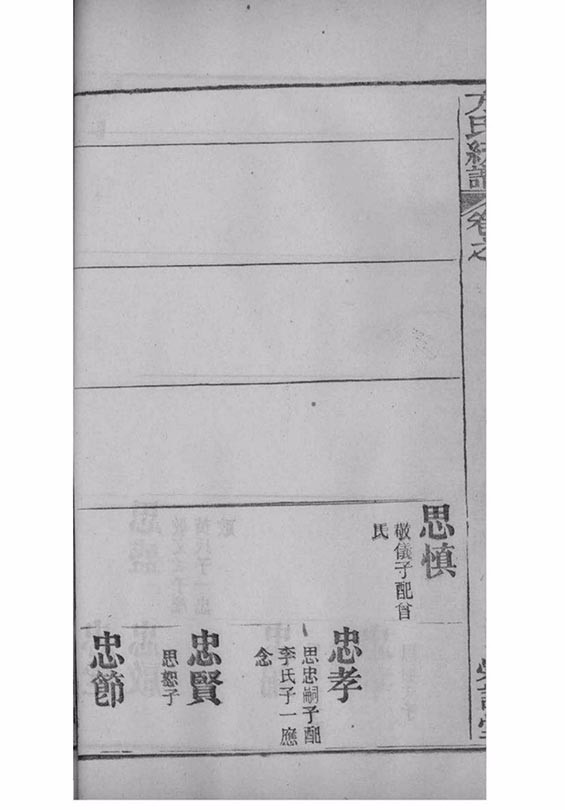 方氏統譜 卷之
思慎
敬儀子配曾
氏
忠孝
思忠嗣子配
李氏子一應
念
忠賢
思恕子
忠節